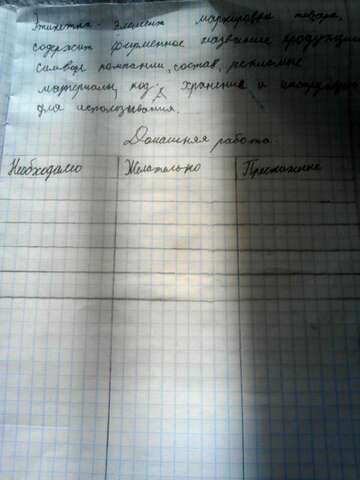 Этикетка - элемент маркировки товара,
содержит фирменное название продукции
символ компании, состав, рекламные
материалы, код, хранение и инструкция
для использования.
Домашняя работа.
Необходимо Желательно Престижно